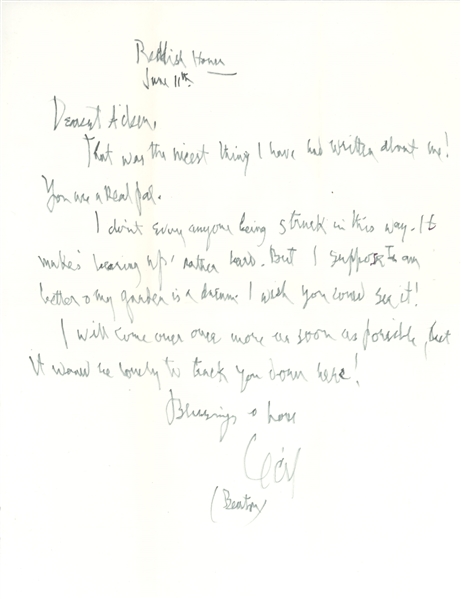 Reddish House
June 11th.
Dearest Aileen,
That was the nicest thing I have had written about me!
You are a Real pal.
I don't envy anyone being struck in this way. It
makes 'bearing up' rather hard. But I suppose I am
better & my garden is a dream. I wish you could see it!
I will come over once more as soon as possible, but
it would be lovely to track you down here!
Blessings & love
Cecil
(Beaton)